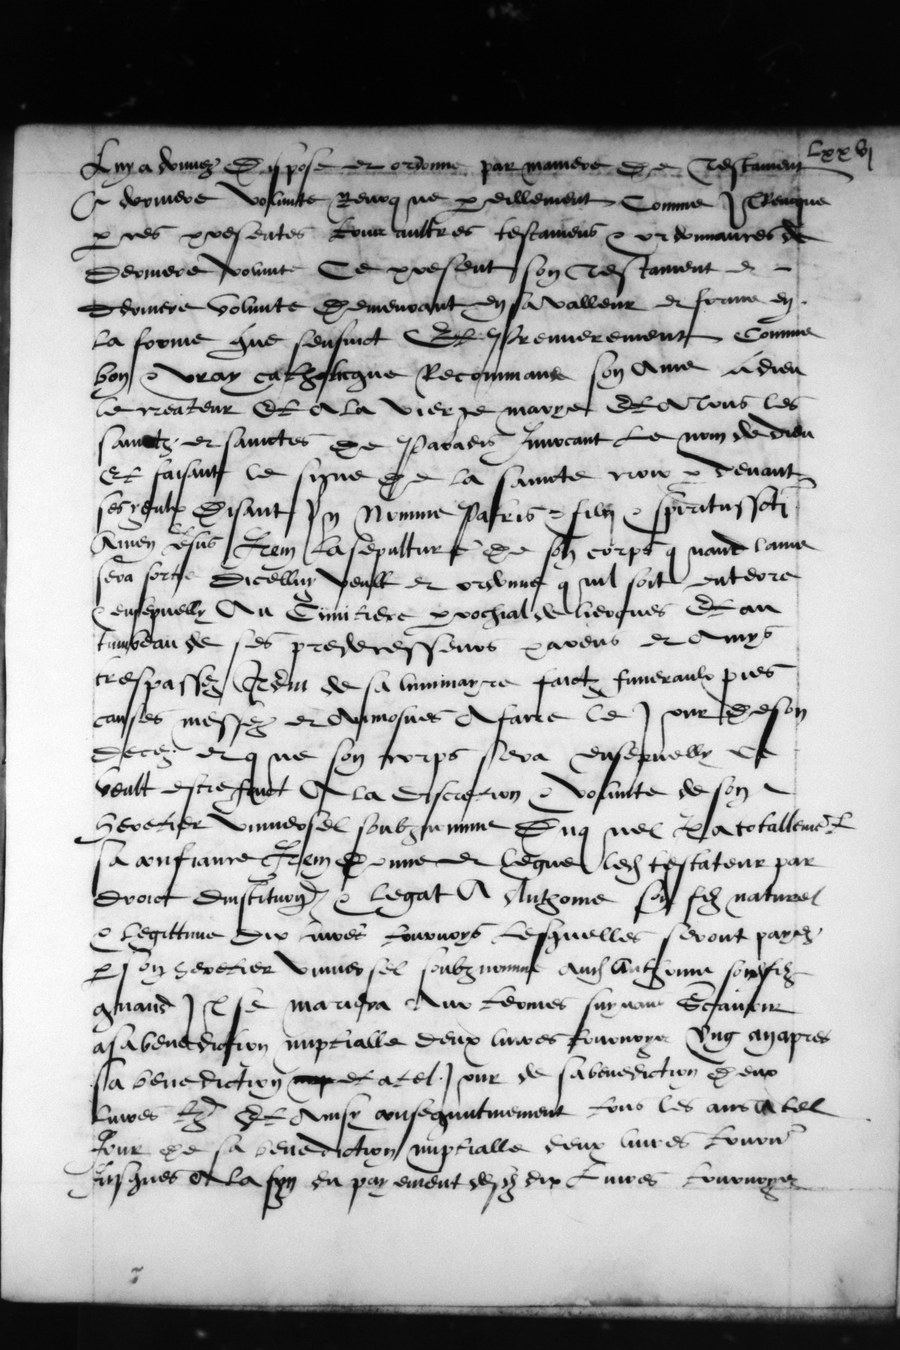 LXXVI
Luy a donnez dispose et ordonne par maniere de testament
et derniere volunte Revoque pareillement comme Il Revoque
par ces presentes tous aultres testamens et ordonnances de
derniere volunte Ce present son testament et
derniere volunte demeurant en sa valleur et force en
la forme que sensuict Et premierement comme
bon et vray catholicque Recommande son ame a dieu
le createur Et a la vierge marye Et a tous les
sainctz et sainctes de Paradis Invocant le nom de dieu
Et faisant le signe de la saincte croix devant
ses yeulx disant In Nomine Patris et filij et spiritussancti
Amen Jesus Item la sepulture de son corps quand lame
sera sortie dicelluy veult et ordonne quil soit enterre
et ensepuelly Au Cimitiere parrochial de Et au
tumbeau de ses predecesseurs parens et amys
trespassez Item de sa luminayre faictz funeraulx pies
causes messes et Aulmosnes A faire le Jour de son
decez et que son corps sera ensepuelly Ce
veult estre faict A la discretion et volunte de son
heretier universel soubznomme Duquel Il a totallement
sa confiance Item donne et legue led testateur par
droict dinstitution et legat A Anthoine son filz naturel
et legittime dix livres tournoys Lesquelles seront payez
par son heretier universel soubznomme aud Anthoine son filz
quand Il se mariera Aux termes suyvans Scavoir
a sa benediction nuptialle deux livres tournoys Ung an apres
sa benediction et a tel Jour de sa benediction deux
livres tz Et Ainsy consequutivement tous les ans A tel
Jour de sa benediction nuptialle deux livres tourn
Jusques A la fin du payement desd dix livres tournoys